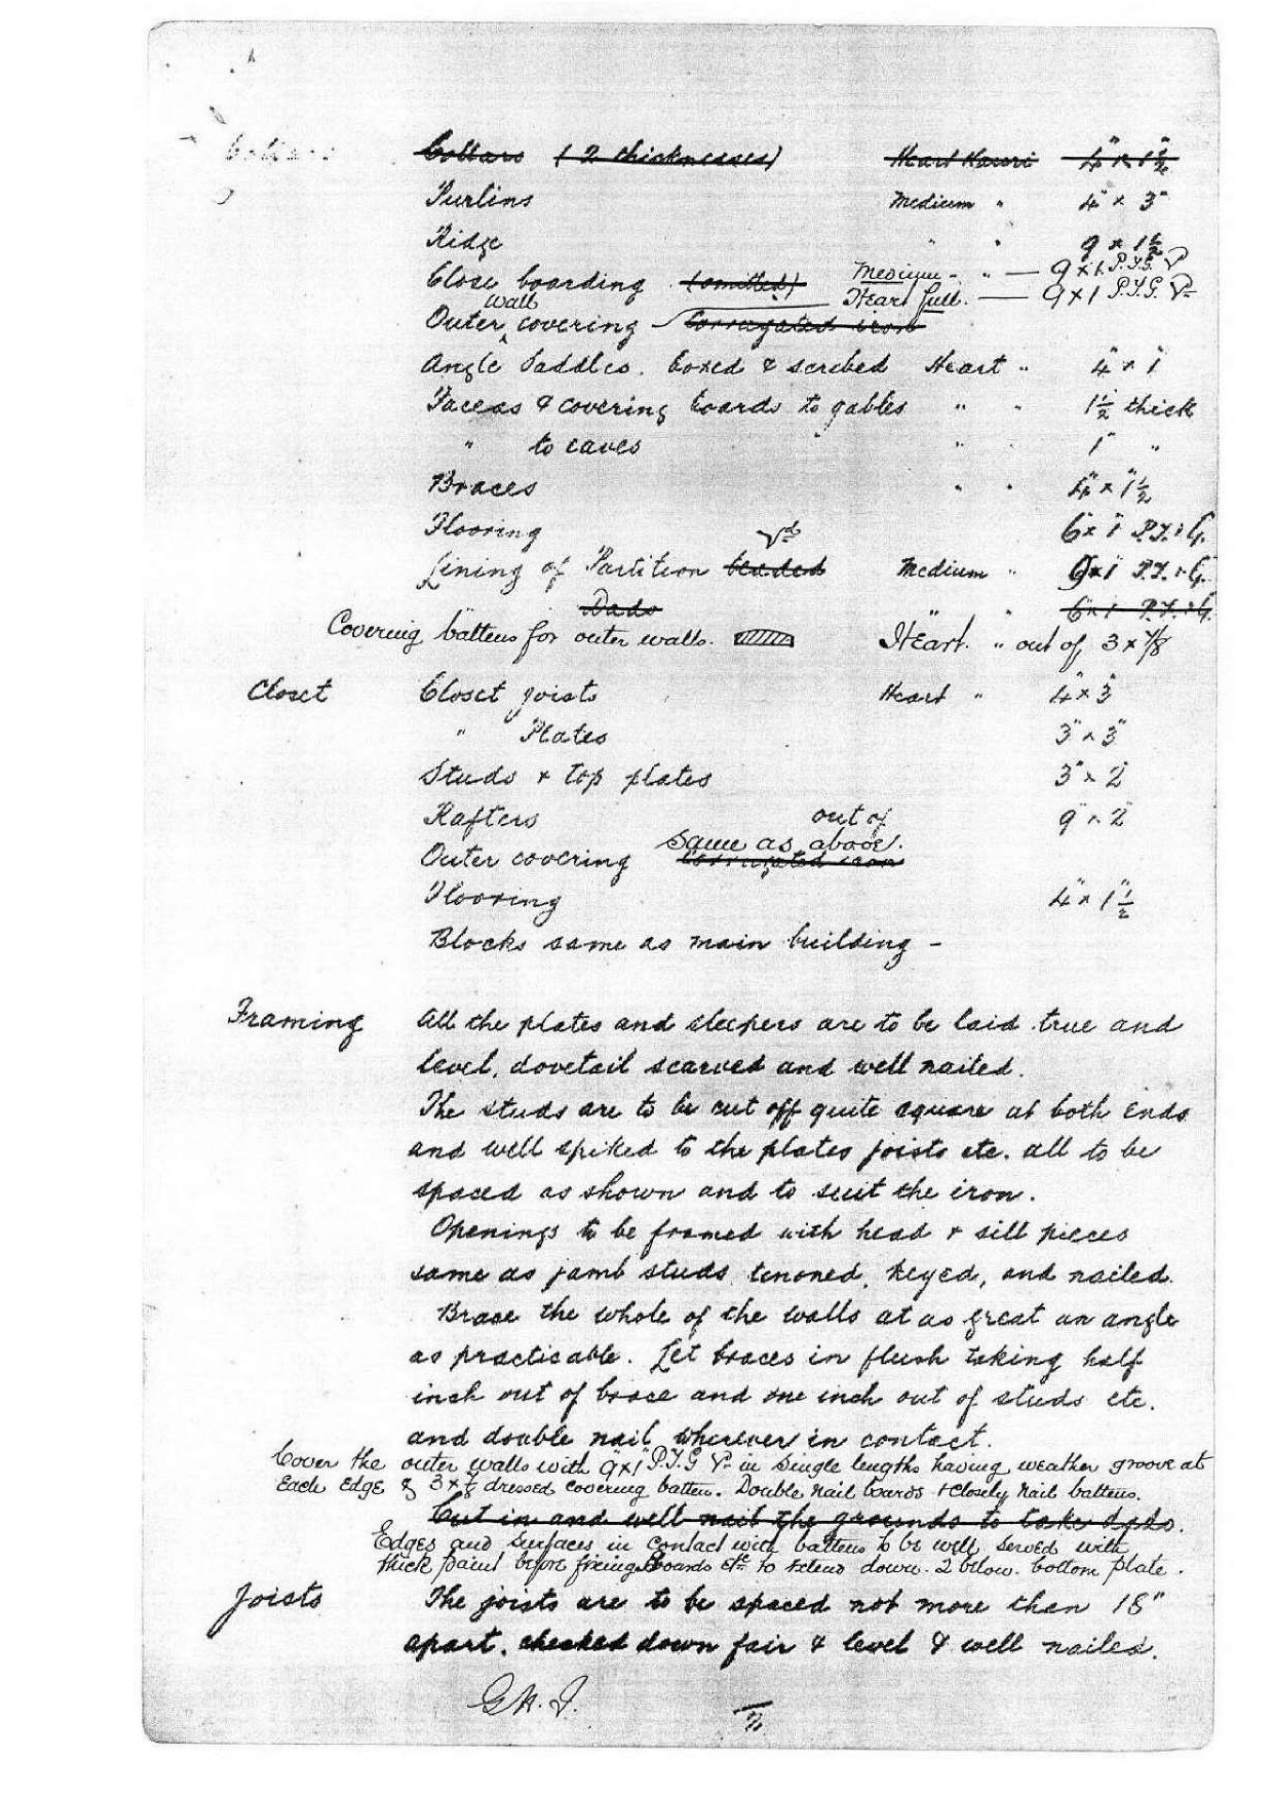 Collars Collars (2 thicknesses) Heart Kauri 4" x 1½"
Purlins Medium " 4" x 3"
Ridge " " 9 x 1½
Close boarding (omitted) Medium " — 9 x 1 P.T.G. V
wall Heart full. — 9 x 1 P.T.G. V
Outer covering corrugated iron
Angle Saddles. boxed & scribed Heart " 4" x 1"
Facias & covering boards to gables " " 1½" thick
" to eaves " " 1" "
Braces " " 4" x 1½"
Flooring 6" x 1" P.T. & G.
Vd
Lining of Partition beaded Medium " 9x1 P.T. & G.
Dado " " 6x1 P.T. & G.
Covering battens for outer walls. Heart. " out of 3 x 7/8
Closet Closet joists Heart " 4" x 3"
" Plates 3" x 3"
Studs & top plates 3" x 2"
Rafters out of 9" x 2"
same as above.
Outer covering corrugated iron
Flooring 4" x 1½"
Blocks same as main building –
Framing All the plates and sleepers are to be laid true and
level, dovetail scarved and well nailed.
The studs are to be cut off quite square at both ends
and well spiked to the plates joists etc. all to be
spaced as shown and to suit the iron.
Openings to be framed with head & sill pieces
same as jamb studs, tenoned, keyed, and nailed.
Brace the whole of the walls at as great an angle
as practicable. Let braces in flush taking half
inch out of brace and one inch out of studs etc.
and double nail wherever in contact.
Cover the outer walls with 9"x1" P.T.G V in single lengths having weather groove at
Each Edge & 3 x 7/8 dressed covering batten. Double nail boards & closely nail battens.
Cut in and well nail the grounds to take dado.
Edges and surfaces in contact with battens to be well served with
thick paint before fixing. Boards etc to extend down 2 below bottom plate.
Joists The joists are to be spaced not more than 18"
apart, checked down fair & level & well nailed.